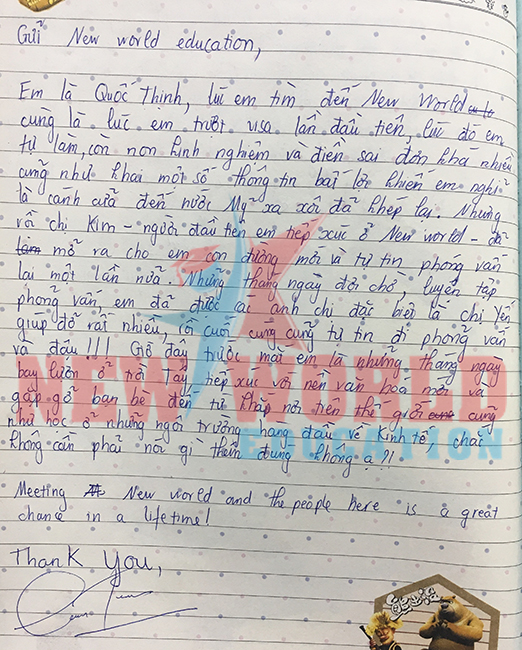 Gửi New world education,
Em là Quốc Thịnh, lúc em tìm đến New World
cũng là lúc em trượt visa lần đầu tiên, lúc đó em
tự làm, còn non kinh nghiệm và điền sai đơn khá nhiều
cũng như khai một số thông tin bất lợi khiến em nghĩ
là cánh cửa đến nước Mỹ xa xôi đã khép lại. Nhưng
rồi chị Kim - người đầu tiên em tiếp xúc ở New world - đã
mở ra cho em con đường mới và tự tin phỏng vấn
lại một lần nữa. Những tháng ngày đợi chờ, luyện tập
phỏng vấn em đã được các anh chị đặc biệt là chị Yến
giúp đỡ rất nhiều, rồi cuối cùng cũng tự tin đi phỏng vấn
và đậu!!!! Giờ đây trước mắt em là những tháng ngày
bay lượn ở trời Tây, tiếp xúc với nền văn hóa mới và
gặp gỡ bạn bè đến từ khắp nơi trên thế giới cũng
như học ở những ngôi trường hàng đầu về Kinh tế, chắc
không cần phải nói gì thêm đúng không ạ?!
Meeting New world and the people here is a great
chance in a lifetime!
Thank You,
NEW WORLD
EDUCATION